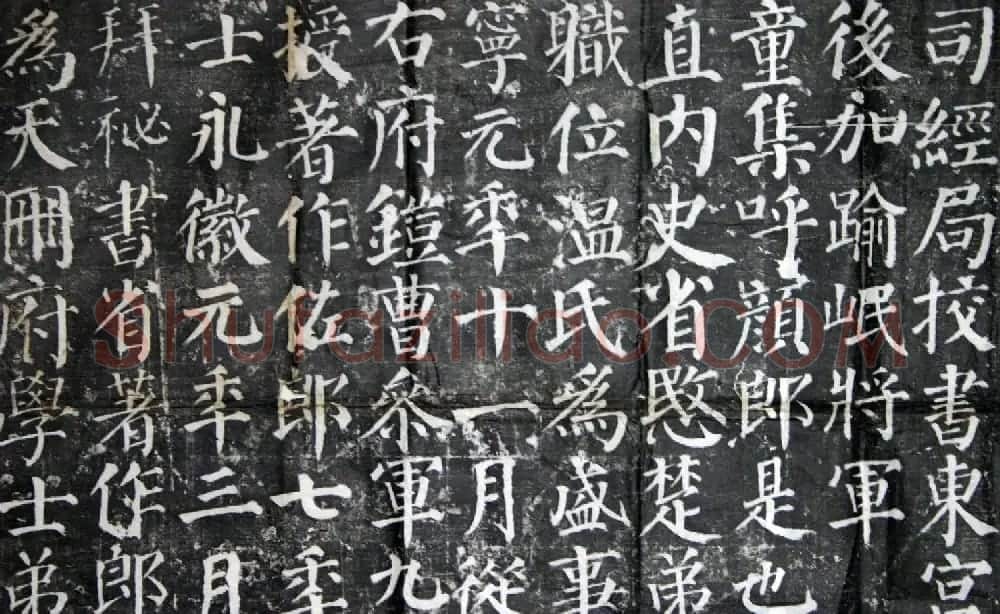 司經局校書東宮
後加踰岷將軍
童集呼顏郎是也
直内史省愍楚弟
職位温氏為盛事
寧元年十一月從
右府鎧曹參軍九
授著作佐郎七年
士永徽元年三月
拜祕書省著作郎
為天冊府學士弟
Shufaziliao.COM